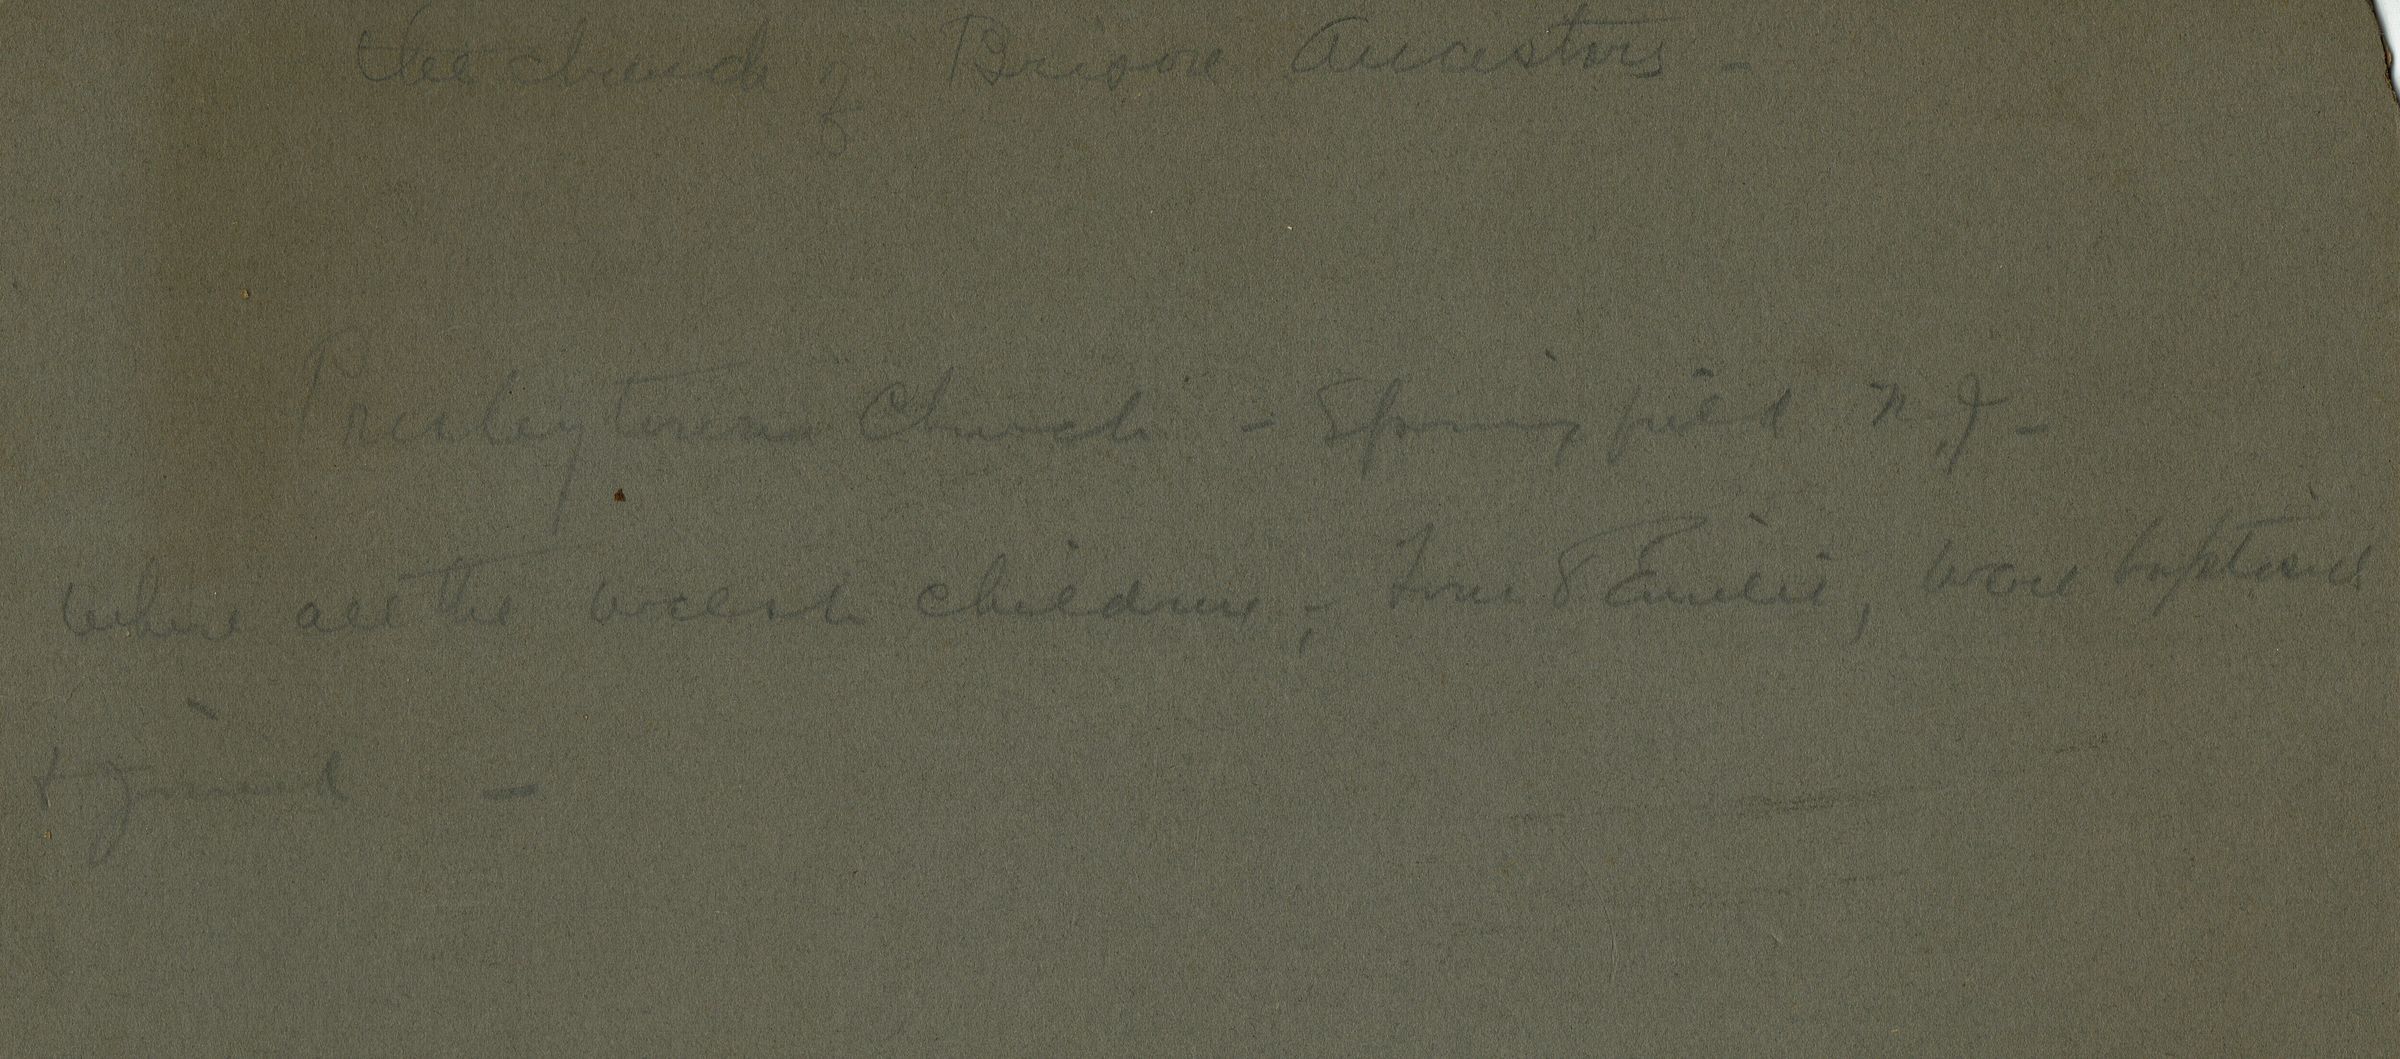 the church of Brison Ancestors -
Presbyterian Church - Springfield N.J -
where all the Welsh children, - & Emilie, were baptised
& joined -